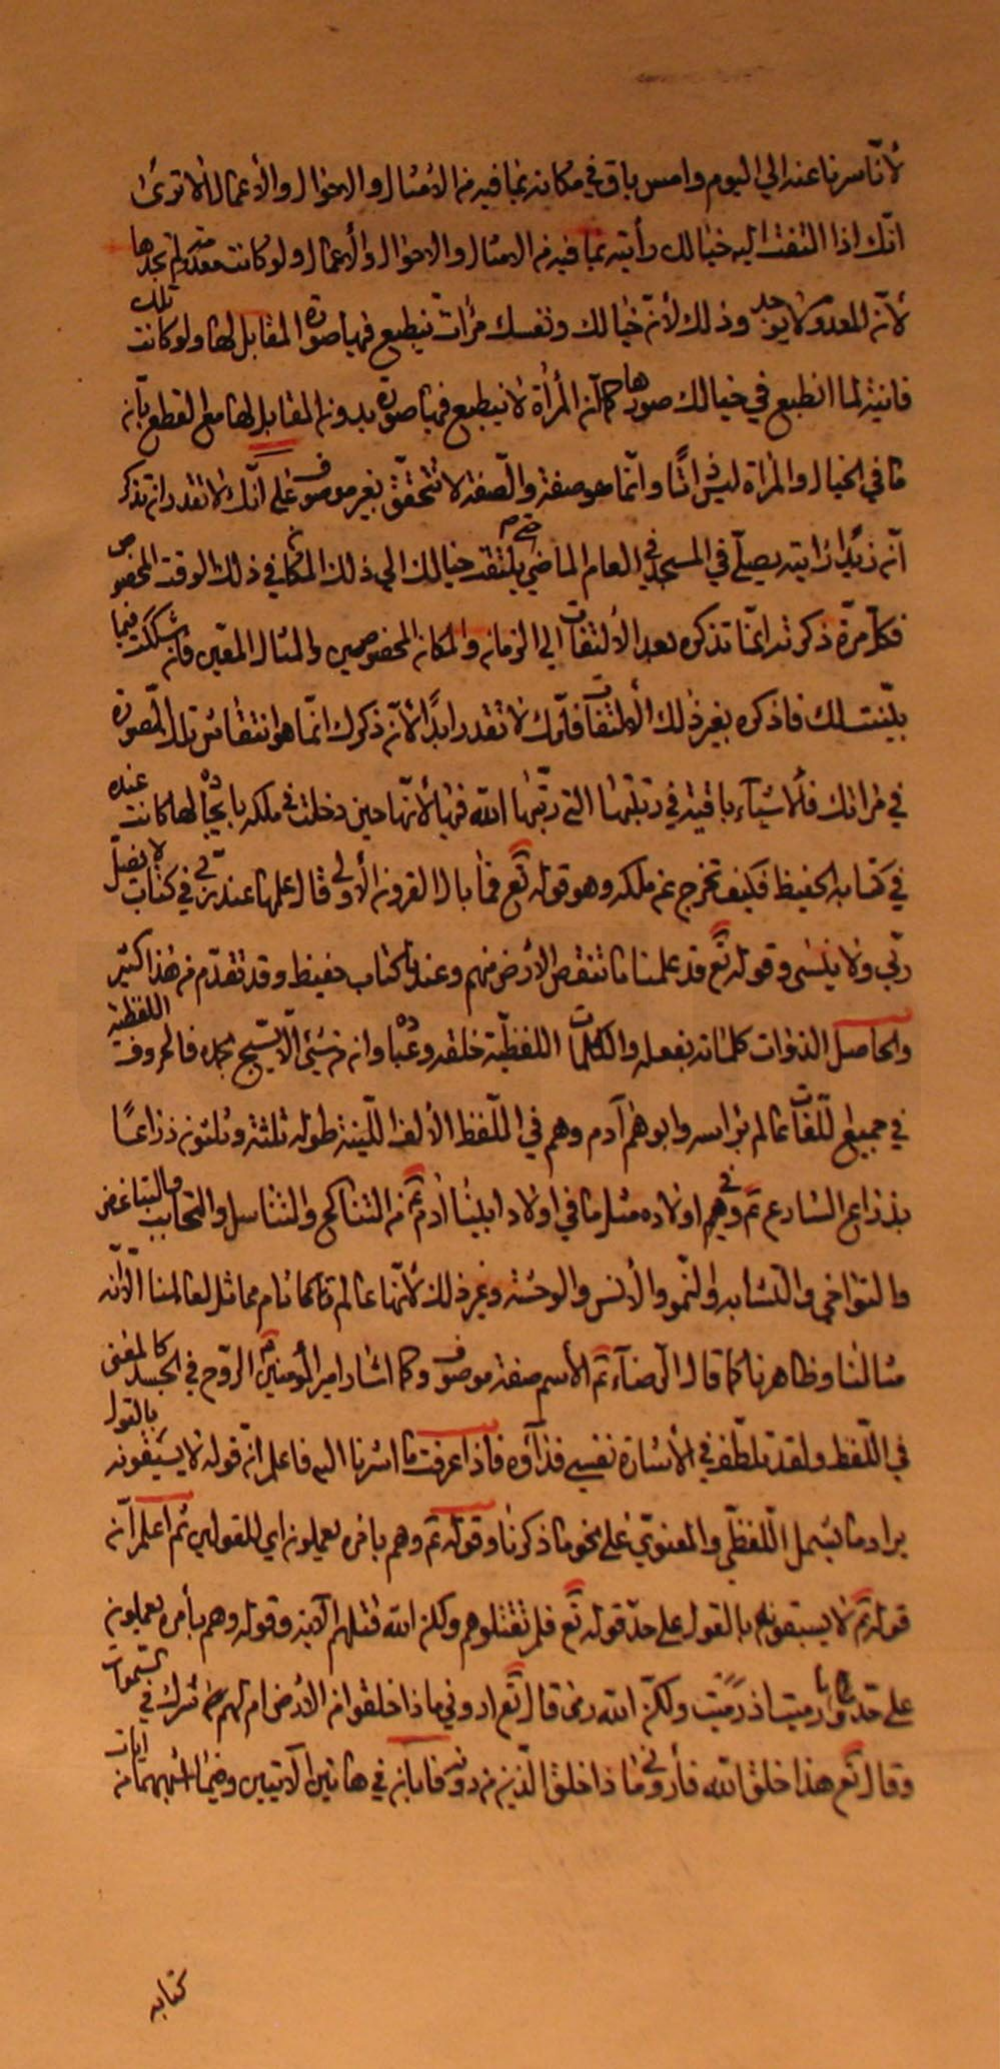 لأنّا سرنا عنه الي اليوم وامس باق في مكانه بما فيه من الامثال والاحوال والأعمال الا تري
انّك اذا التفت اليه خيالك رأيته بما فيه من الامثال والاحوال والأعمال ولو كانت معدومة لم تجدها
لأنّ المعدوم لا يوجد وذلك لأنّ خيالك ونفسك مرآت ينطبع فيها صورة المقابل لها ولو كانت تلك
فانية لما انطبع في خيالك صورها كما أنّ المرأة لا ينطبع فيها صورة بدون المقابل لها مع القطع بأنّ
ما في الخيال والمرأة ليس ذاتًا وانّما هو صفة والصّفة لا تتحقّق بغير موصوف علي انّك لا تقدر ان تذكر
أنّ زيدًا رايته يصلّي في المسجد في العام الماضي حتي يلتفت خيالك الي ذلك المكان في ذلك الوقت المخصوص
فكلّ مرّة ذكرته انّما تذكره بعد الألتفات الي الزمان والمكان المخصوصين والمثال المعيّن فان شككت فيما
بيّنت لك فاذكره بغير ذلك الألتفات فانّك لا تقدر ابدًا لأنّ ذكرك انّما هو انتقاش تلك الصّورة
في مراتك فالأشياء باقية في رتبتها التي رتّبها الله فيها لأنّها حين دخلت في ملكه بايجاده لها كانت عنده
في كتابه الحفيظ فكيف تخرج عن ملكه وهو قوله تع فما بال القرون الأولي قال علمها عند ربّي في كتاب لا يضلّ
ربّي ولا ينسي وقوله تع قد علمنا ما تنقص الأرض منهم وعندنا كتاب حفيظ وقد تقدّم من هذا كثير
والحاصل الذوات كلماته بفعله والكلمات اللفظيّة خلقه وعباده وان من شيئ الّا يسبّح بحمده فالحروف اللفظية
في جميع اللّغات عالم برأسه وابوهم آدم وهم في اللّفظ الألف اللّينة طوله ثلثة وثلثون ذراعًا
بذراع الشارع تم وفيهم اولاده مثل ما في اولاد ابينا آدم تم من التناكح والتناسل والتحابب والتباغض
والتواخي والتشابه والنّمو والأنس والوحشة وغير ذلك لأنّها عالم تام مماثل لعالمنا الّا انّه
مثالنا وظاهرنا كما قال الرّضا تم الأسم صفة موصوف وكما اشار امير المؤمنين الرّوح في الجسد كالمعني
في اللّفظ ولقد تلطّف في الأشارة نفسي فداؤه فاذا عرفت ما اشرنا اليه فاعلم انّ قوله لا يسبقونه بالقول
يراد ما يشمل اللّفظي والمعنويّ علي نحو ما ذكرنا وقوله تم وهم بامره يعملون اي للقولين ثم اعلم أنّ
قوله تم لا يسبقونه بالقول علي حدّ قوله تع فلم تقتلوهم ولكن الله قتلهم الآية وقوله وهم بأمره يعملون
علي حدّ وما رميت اذ رميت ولكنّ الله رمي قال تع اروني ماذا خلقوا من الارض ام لهم شرك في السّموات
وقال تع هذا خلق الله فأروني ماذا خلق الّذين من دونه فابان في هاتين الآيتين وفيما اشبههما من ايات
كتابه